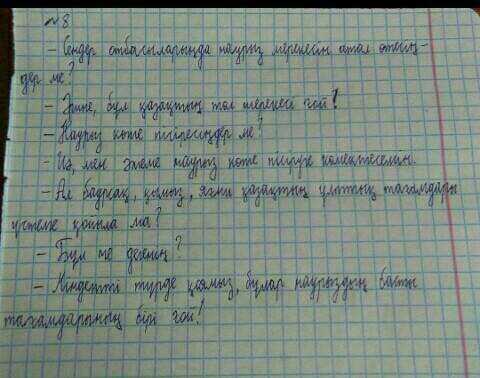 №8
– Сендер отбасыларыңда наурыз мерекесін атап өтесің-
дер ме?
– Әрине, бұл қазақтың төл мерекесі ғой!
– Наурыз көже пісіресіңдер ме?
– Иә, мен әжеме наурыз көже пісіруге көмектесемін.
– Ал бауырсақ, қымыз, яғни қазақтың ұлттық тағамдары
үстелге қойыла ма?
– Бұл не дегенің?
– Міндетті түрде қоямыз, бұлар наурыздың басты
тағамдарының бірі ғой!